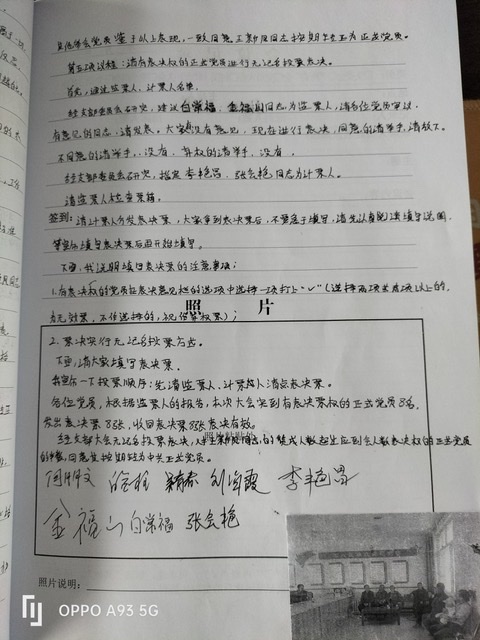 其他参会党员鉴于以上表现,一致同意王新同志按期转正为正式党员。
第五项议程:请有表决权的正式党员进行无记名投票表决。
首先,通过监票人、计票人名单。
经支部委员会研究,建议白常福、金福山同志为监票人,请各位党员审议,
有意见的同志,请发表。大家没有意见,现在进行表决,同意的请举手,请放下。
不同意的请举手,没有,弃权的请举手,没有。
经支部委员会研究,指定李艳昌、张会艳同志为计票人。
请监票人检查票箱。
签到:请计票人分发表决票,大家拿到表决票后,不要急于填写,请先认真阅读填写说明,
等宣布填写表决票后再开始填写。
下面,我说明填写表决票的注意事项:
1.有表决权的党员在表决意见栏的选项中选择一项打上“√”(选择两项或者项以上的,
为无效票,不作选择的,视作弃权票);
照 片
2.票决实行无记名投票方式。
下面,请大家填写表决票。
我宣布一下投票顺序:先请监票人、计票人清点表决票。
各位党员,根据监票人的报告,本次大会实到有表决权的正式党员8名,
发出表决票8张,收回表决票8张表决有效。
经支部大会无记名投票表决,对王新同志的赞成人数超过应到会人数表决权的正式党员
的半数,同意按期转为中共正式党员。
刘海霞 李艳昌
金福山 白常福 张会艳
照片说明:
OPPO A93 5G